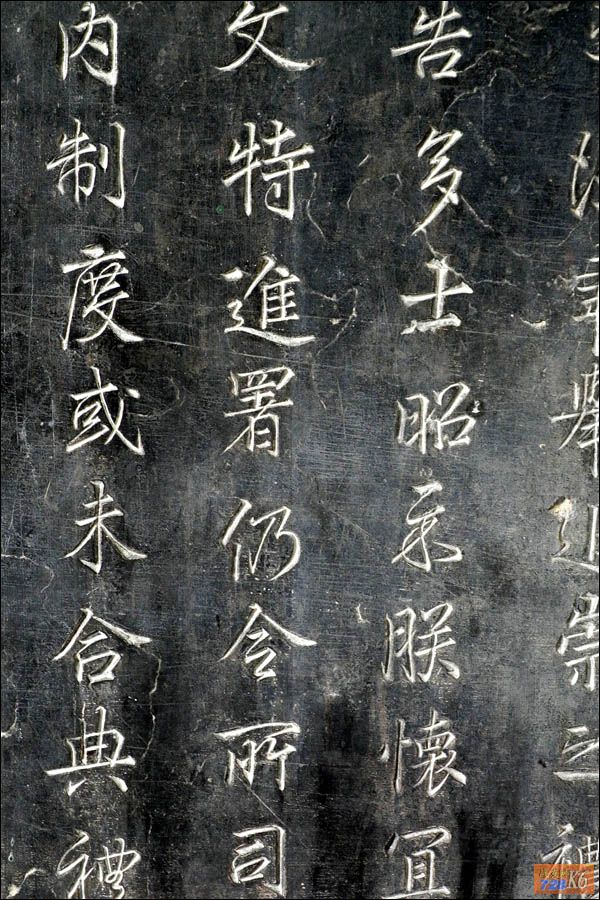 舉追崇之禮
告多士昭示朕懷冝
文特進署仍令所司
內制度或未合典禮